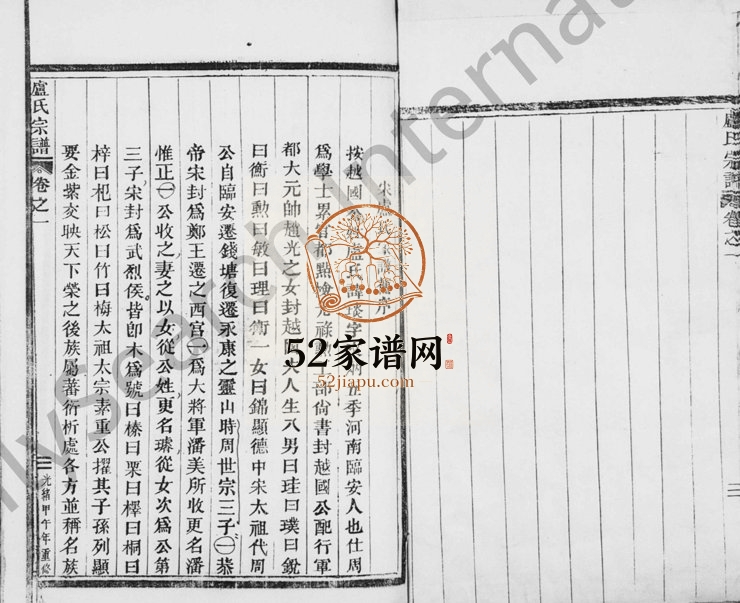 盧氏宗譜
卷之一
宋盧氏宗譜舊序
按越國公姓盧氏諱琰字 季河南臨安人也仕周
爲學士累 都點檢光祿 工部尚書封越國公配行軍
都大元帥趙光之女封越國夫人生八男曰珪曰璞曰銳
曰衡曰勲曰敏曰理曰衛一女曰錦顯德中宋太祖代周
公自臨安遷錢塘復遷永康之靈山時周世宗三子㊀恭
帝宋封爲鄭王遷之西宫㊀爲大將軍潘美所收更名潘
惟正㊀公收之妻之以女從公姓更名璿從女次爲公第
三子宋封爲武烈侯皆卽木爲號曰榛曰栗曰檡曰桐曰
梓曰杞曰松曰竹曰梅太祖太宗素重公擢其子孫列顯
要金紫交映天下榮之後族屬蕃衍析處各方並稱名族
三
光緒甲午年重修
盧氏宗譜
卷之一
三
52家谱网
52jiapu.com
lysearch International